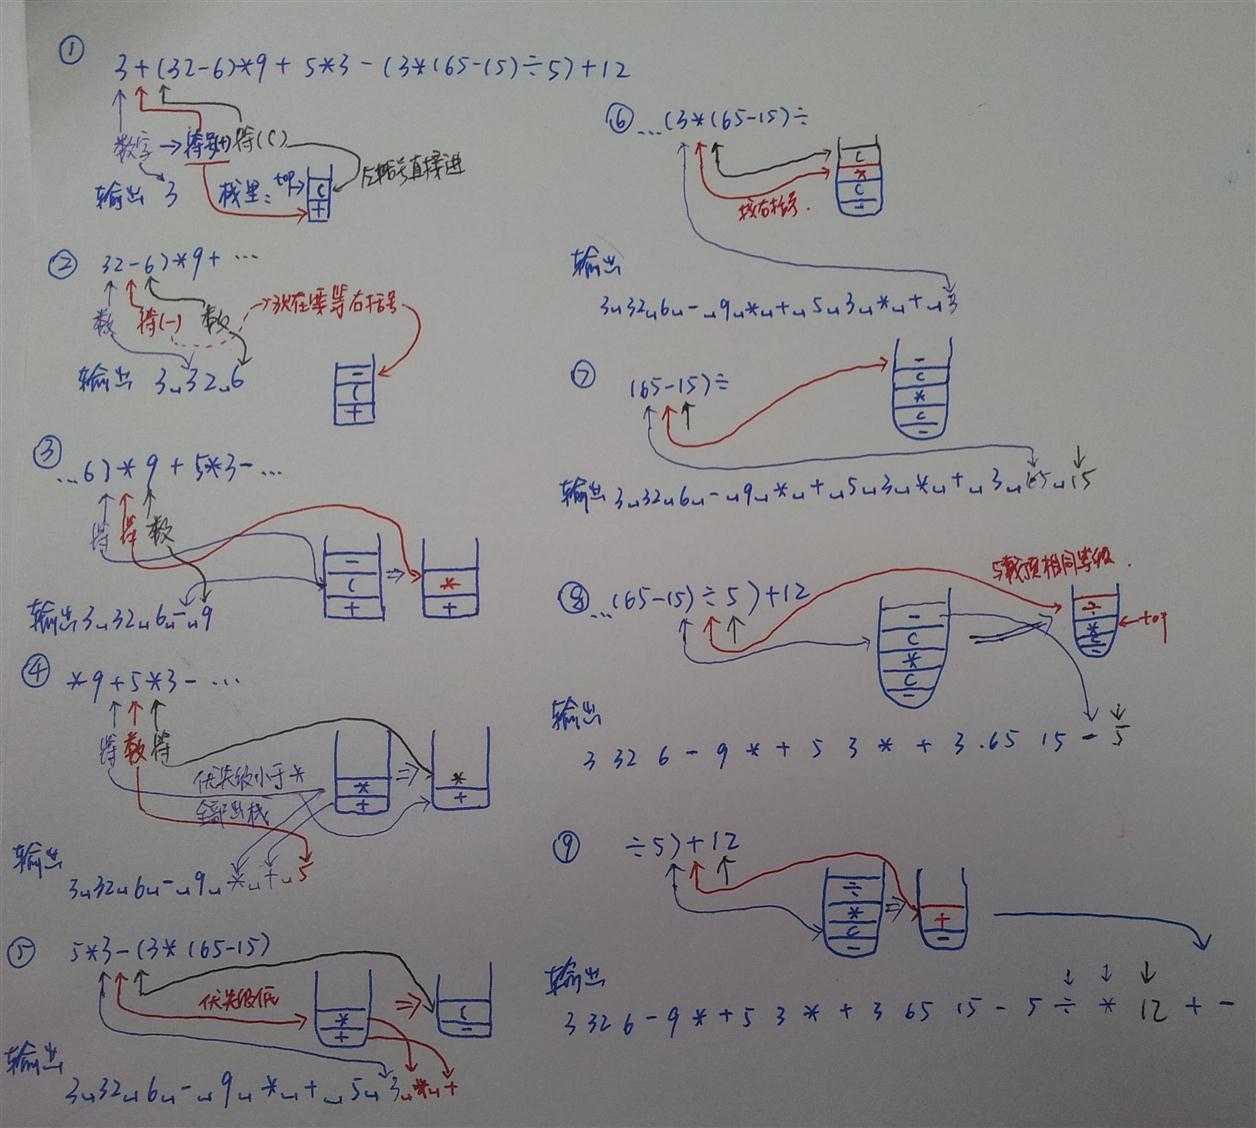 ①
3+(32-6)*9+5*3-(3*(65-15)÷5)+12
数字→符号(+)符(()
输出 3 栈里: top→ 左括号直接进
(
+
②
32-6)*9+…
数 符(-) 数 →现在要等右括号
输出 3␣32␣6
-
(
+
③
…6)*9+5*3-…
符 符 数
- ( + ⇒ * +
输出3␣32␣6␣-␣9
④
*9+5*3-…
符 数 符
优先级小于*
全部出栈
* + ⇒ * +
输出
3␣32␣6␣-␣9␣*␣+␣5
⑤
5*3-(3*(65-15)
优先级低
* + ⇒ ( -
输出
3␣32␣6␣-␣9␣*␣+␣5␣3␣*␣+
⑥
…(3*(65-15)÷
( * ( -
找右括号.
输出
3␣32␣6␣-␣9␣*␣+␣5␣3␣*␣+␣3
⑦
(65-15)÷
- ( * ( -
输出 3␣32␣6␣-␣9␣*␣+␣5␣3␣*␣+␣3␣65␣15
⑧
…(65-15)÷5)+12
与栈顶相同等级.
- ( * ( - ÷ * ( - ←top
输出
3 32 6 - 9 * + 5 3 * + 3.65 15 - 5
⑨
÷5)+12
÷ * ( - ⇒ + -
输出
3 32 6 - 9 * + 5 3 * + 3 65 15 - 5 ÷ * 12 + -